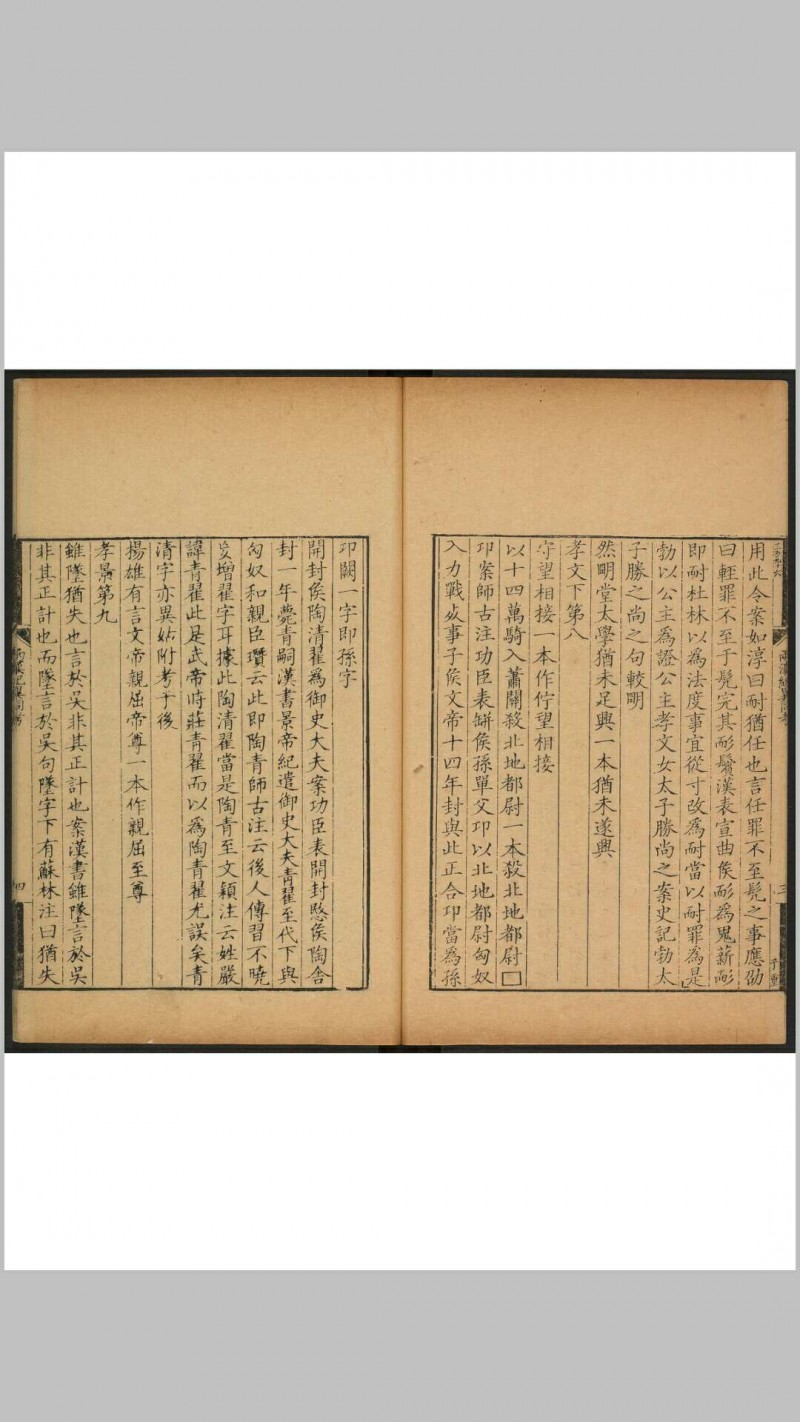 用此令案如淳曰耐猶任也言任罪不至髡之事應劭
曰輕罪不至于髡完其耏鬢漢表宣曲侯耏為鬼薪耏
即耐杜林以為法度事宜從寸改為耐當以耐罪為是
勃以公主為證公主孝文女太子勝尚之案史記勃太
子勝之尚之句較明
然明堂太學猶未足興一本猶未遂興
孝文下第八
守望相接一本作佇望相接
以十四萬騎入蕭關殺北地都尉一本殺北地都尉□
卬案師古注功臣表缾侯孫單父卬以北地都尉匈奴
入力戰死事子侯文帝十四年封與此正合卬當為孫
卬闕一字即孫字
開封侯陶清翟為御史大夫案功臣表開封愍侯陶舍
封一年薨青嗣漢書景帝紀遣御史大夫青翟至代下與
匈奴和親臣瓚云此即陶青師古注云後人傳習不曉
妄增翟字耳據此陶清翟當是陶青至文穎注云姓嚴
諱青翟此是武帝時莊青翟而以為陶青翟尤誤矣青
清字亦異姑附考于後
揚雄有言文帝親屈帝尊一本作親屈至尊
孝景第九
錐墜猶失也言於吳非其正計也案漢書錐墜言於吳
非其正計也而墜言於吳句墜字下有蘇林注曰猶失
三
四